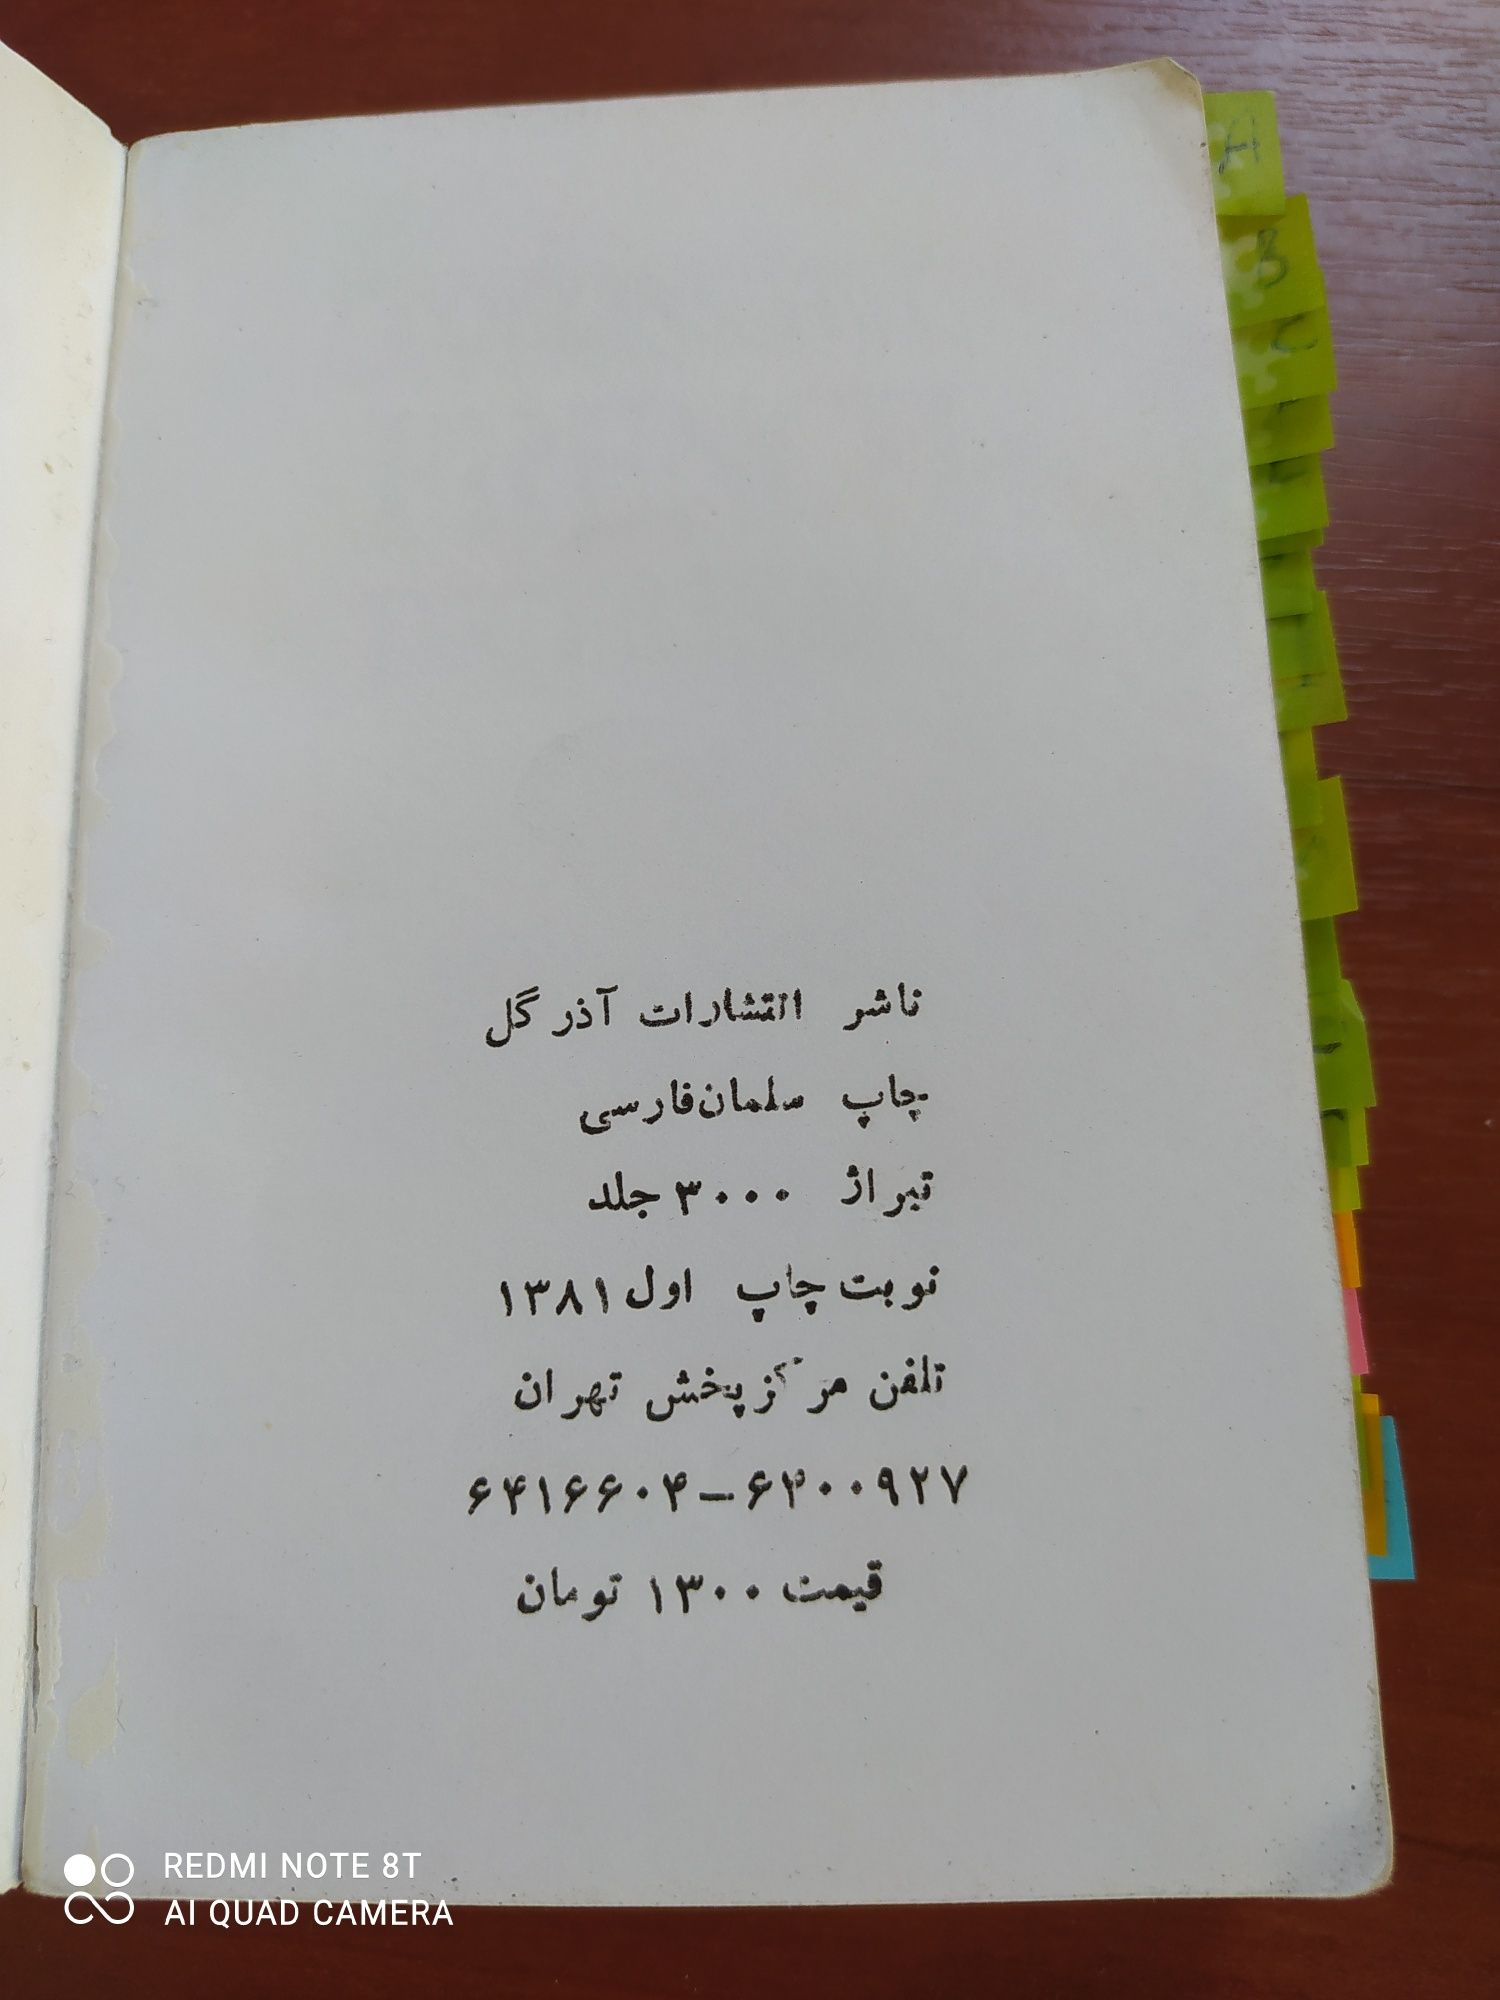 A
B
C
ناشر انتشارات آذر گل
چاپ سلمان فارسی
تیراژ ۳۰۰۰ جلد
نوبت چاپ اول ۱۳۸۱
تلفن مرکز پخش تهران
۶۴۱۶۶۰۴-۶۴۰۰۹۲۷
قیمت ۱۳۰۰ تومان
REDMI NOTE 8T
AI QUAD CAMERA